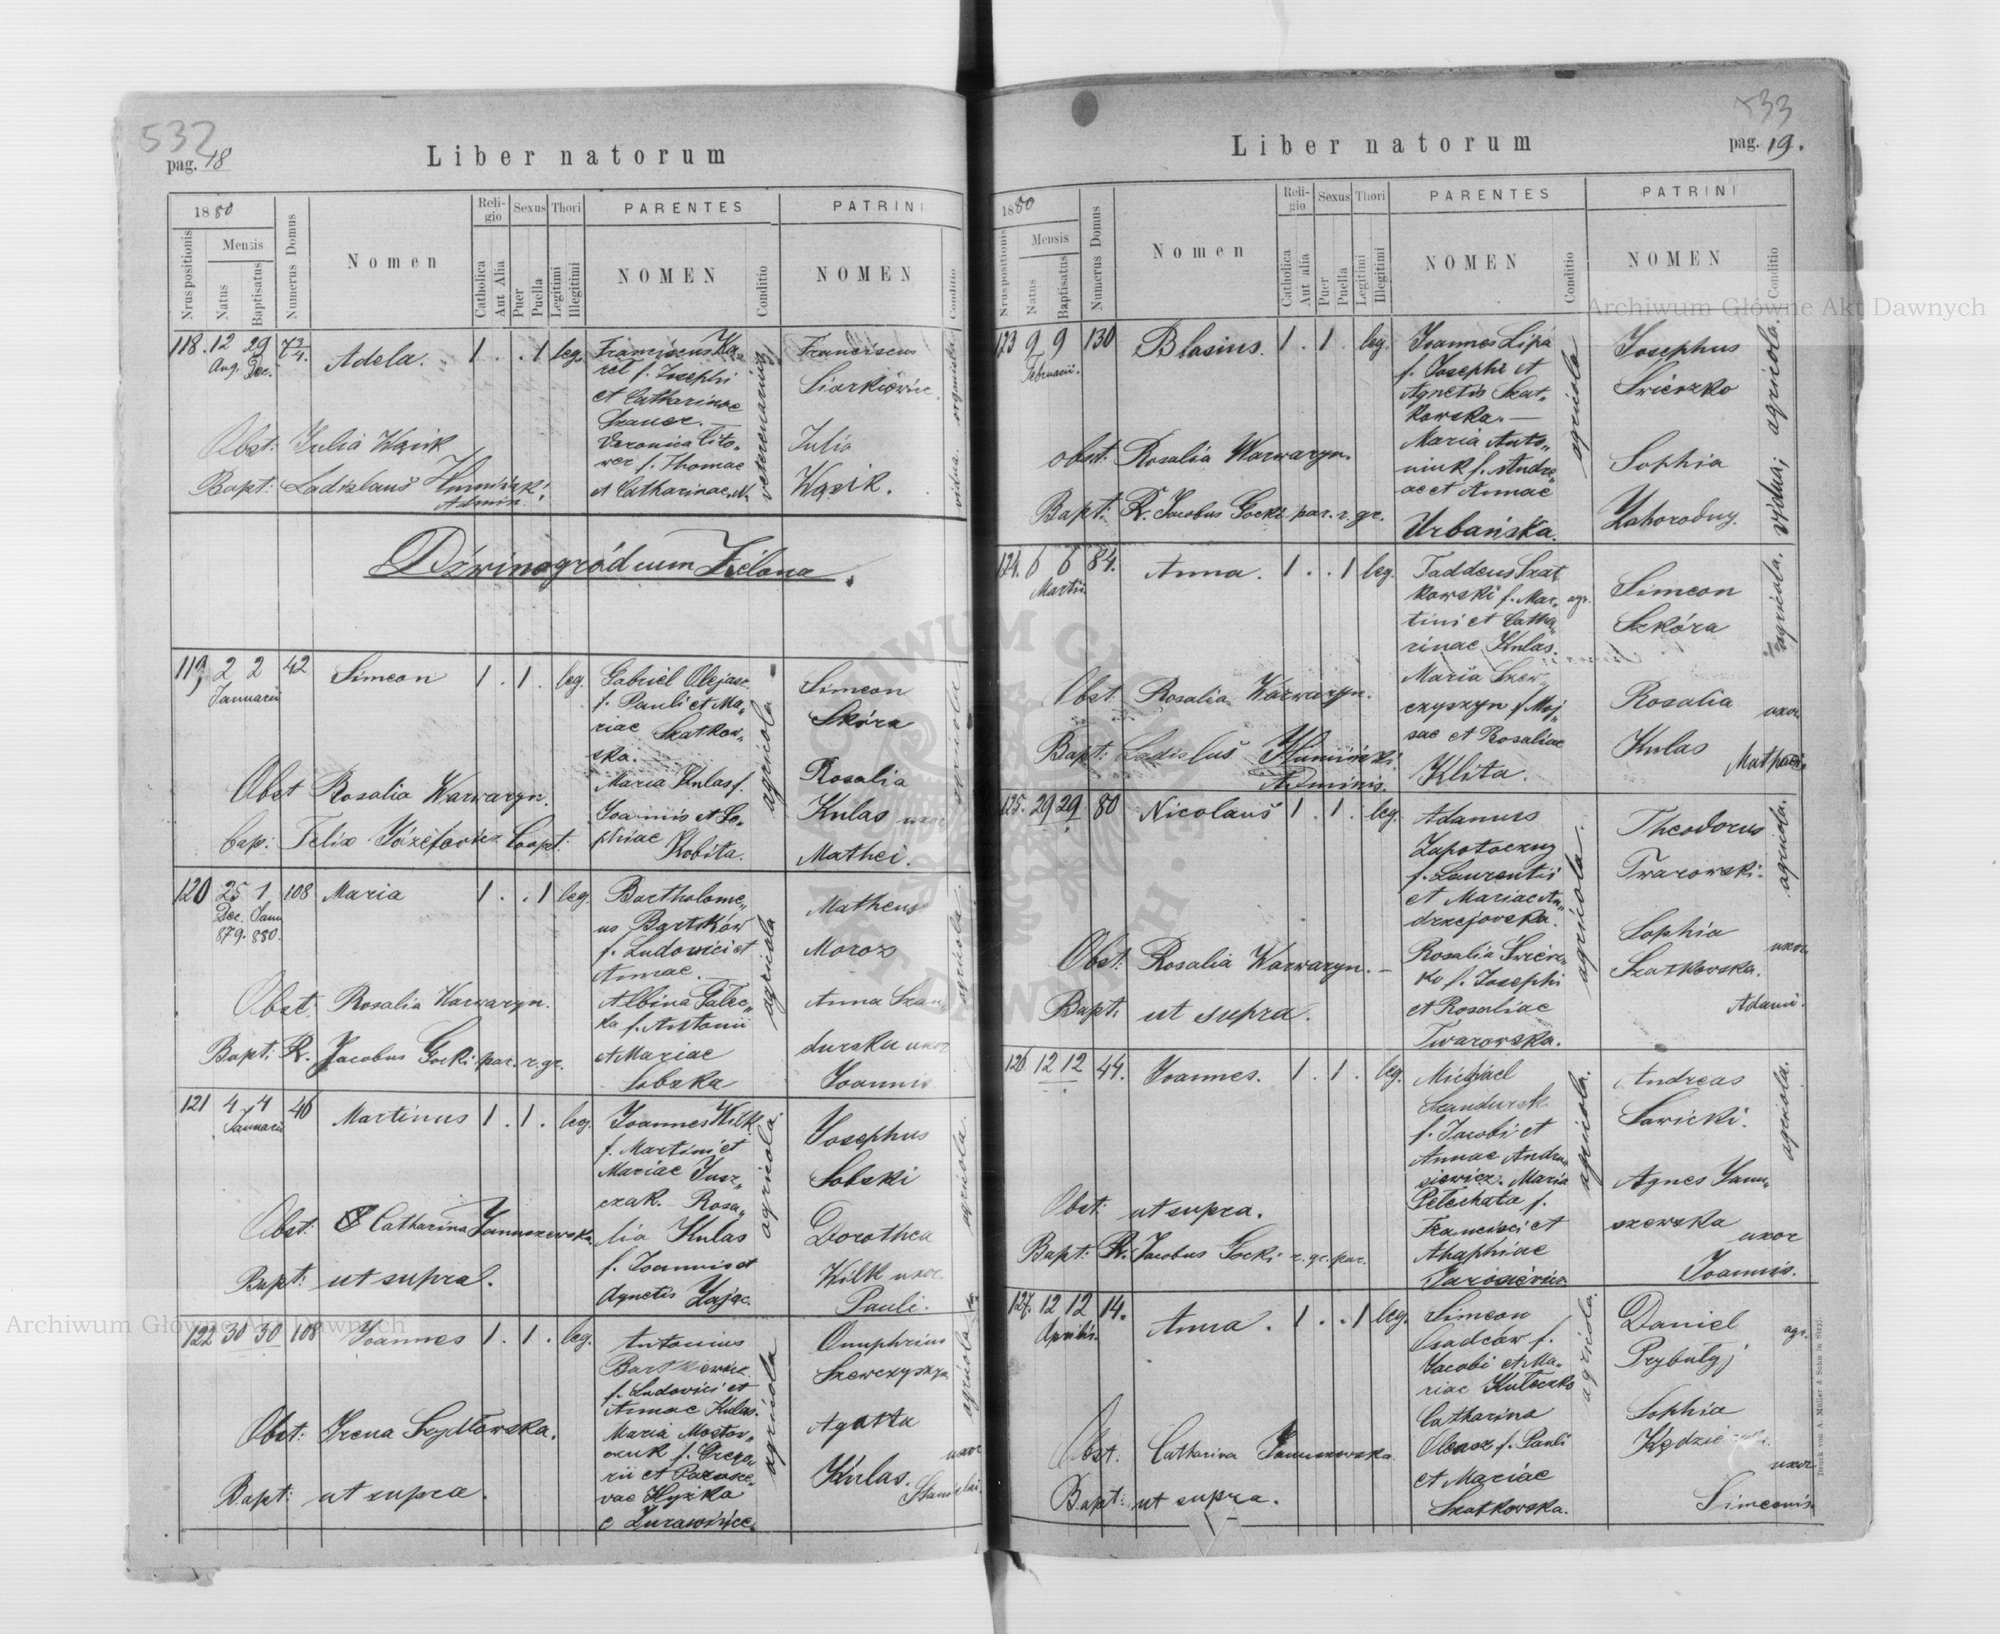 532
pag. 18
Liber natorum
1880
Nrus positionis
Mensis
Natus
Baptisatus
Numerus Domus
Nomen
Religio
Catholica
Aut Alia
Sexus
Puer
Puella
Thori
Legitimi
Illegitimi
PARENTES
NOMEN
Conditio
PATRINI
NOMEN
Conditio
118. 12 29 Adela. 1 . . 1 leg.
Aug. Dec.
Franciscus Ka-
f. Josephi
et Catharinae
Veronica
f. Thomae
et Catharinae N.
veterenarius
Franciscus
Siarkiewicz.
organista
Julia
Wąsik.
vidua.
Obst: Julia Wąsik
Bapt: Ladislaus
Admin.
Dźwinogród cum Zielona.
119 2 2 42 Simeon 1 . 1 . leg.
Januarii
Gabriel Olejasz
f. Pauli et Ma„
riae Szatkow„
ska.
Maria Kulas f.
Joannis et So„
phiae Kobita.
agricola
Simeon
Skóra
Rosalia
Kulas uxor
Mathei.
Obst Rosalia Warwaryn.
Bap: Felix Józefowicz Coopt.
120 25 1 108 Maria 1 . . 1 leg.
Dec. Janu
879. 880.
Bartholome„
us Bartków
f. Ludovici et
Annae.
Albina Galec„
ka f. Antonii
et Mariae
Sobzka
agricola
Matheus
Moroz
Anna Szan„
durska uxor
Joannis
agricola
Obst. Rosalia Warwaryn.
Bapt: R. Jacobus Gocki par. r. gr.
121 4 4 46 Martinus 1 . 1 . leg.
Januarii
Joannes Wilk
f. Martini et
Mariae Jusz„
czak. Rosa„
lia Kulas
f. Joannis et
Agnetis Zając.
agricola
Josephus
Sobski
Dorothea
Wilk uxor
Pauli.
agricola.
Obst: Catharina Januszewska.
Bapt: ut supra.
122 30 30 108 Joannes 1 . 1 . leg.
Antonius
f. Ludovici et
Annae Kulas.
Maria Mostow„
czuk f. Grego
rii et Parasce„
vae Hyzka
e Zurawińce.
agricola
Onuphrius
Szewczyszyn
Agatta
Kulas. uxor
Stanislai.
agricola
Obst: Irena Szydłowska.
Bapt: ut supra.
533
Liber natorum
pag. 19.
1880
Nrus positionis
Mensis
Natus
Baptisatus
Numerus Domus
Nomen
Religio
Catholica
Aut alia
Sexus
Puer
Puella
Thori
Legitimi
Illegitimi
PARENTES
NOMEN
Conditio
PATRINI
NOMEN
Conditio
123 9 9 130 Blasius. 1 . 1 . leg.
Februarii.
Joannes Lipa
f. Josephi et
Agnetis Szat„
kowska. —
Maria Anto„
niuk f. Andre„
ae et Annae
Urbańska.
agricola
Josephus
Swierzko
agricola.
Sophia
Zahorodny.
vidua;
obst: Rosalia Warwaryn.
Bapt: R. Jacobus Gocki par. r. gr.
124. 6 6 84. Anna. 1 . . 1 leg.
Martii
Taddeus Szat„
kowski f. Mar„
tini et Catha„
rinae Kulas.
Maria Szew„
czyszyn f. Moj„
sae et Rosaliae
Klita.
agr.
Simeon
Szkóra
agricola.
Rosalia uxor
Kulas Mathaei.
Obst. Rosalia Warwaryn.
Bapt: Ladislaus
Adminis.
125. 29 29 80 Nicolaus 1 . 1 . leg.
Adamus
Zapotoczny
f. Laurentii
et Mariae An„
drzejowska.
Rosalia Swierz„
ko f. Josephi
et Rosaliae
Twarowska.
agricola.
Theodorus
Twarowski.
agricola.
Sophia uxor
Szatkowska.
Adami.
Obst: Rosalia Warwaryn. —
Bapt. ut supra.
126 12 12 44. Joannes. 1 . 1 . leg.
Michael
Szandurek
f. Jacobi et
Annae Andru„
siewicz. Maria
Petechata f.
Francisci et
Ahaphiae
agricola.
Andreas
Sawicki.
agricola.
Agnes Janu„
szewska uxor
Joannis.
Obst: ut supra.
Bapt: R. Jacobus Gocki r. gr. par.
127. 12 12 14. Anna. 1 . . 1 leg.
Aprilis.
Simeon
f.
Jacobi et Ma„
riae
Catharina
Oleasz f. Pauli
et Mariae
Szatkowska.
agricola.
Daniel agr.
Sophia
uxor
Simeonis
Obst. Catharina Januszewska.
Bapt: ut supra.
Druck von A. Müller & Sohn in Stryj.
Archiwum Główne Akt Dawnych
Archiwum Główne Akt Dawnych
ARCHIWUM GŁÓWNE AKT DAWNYCH